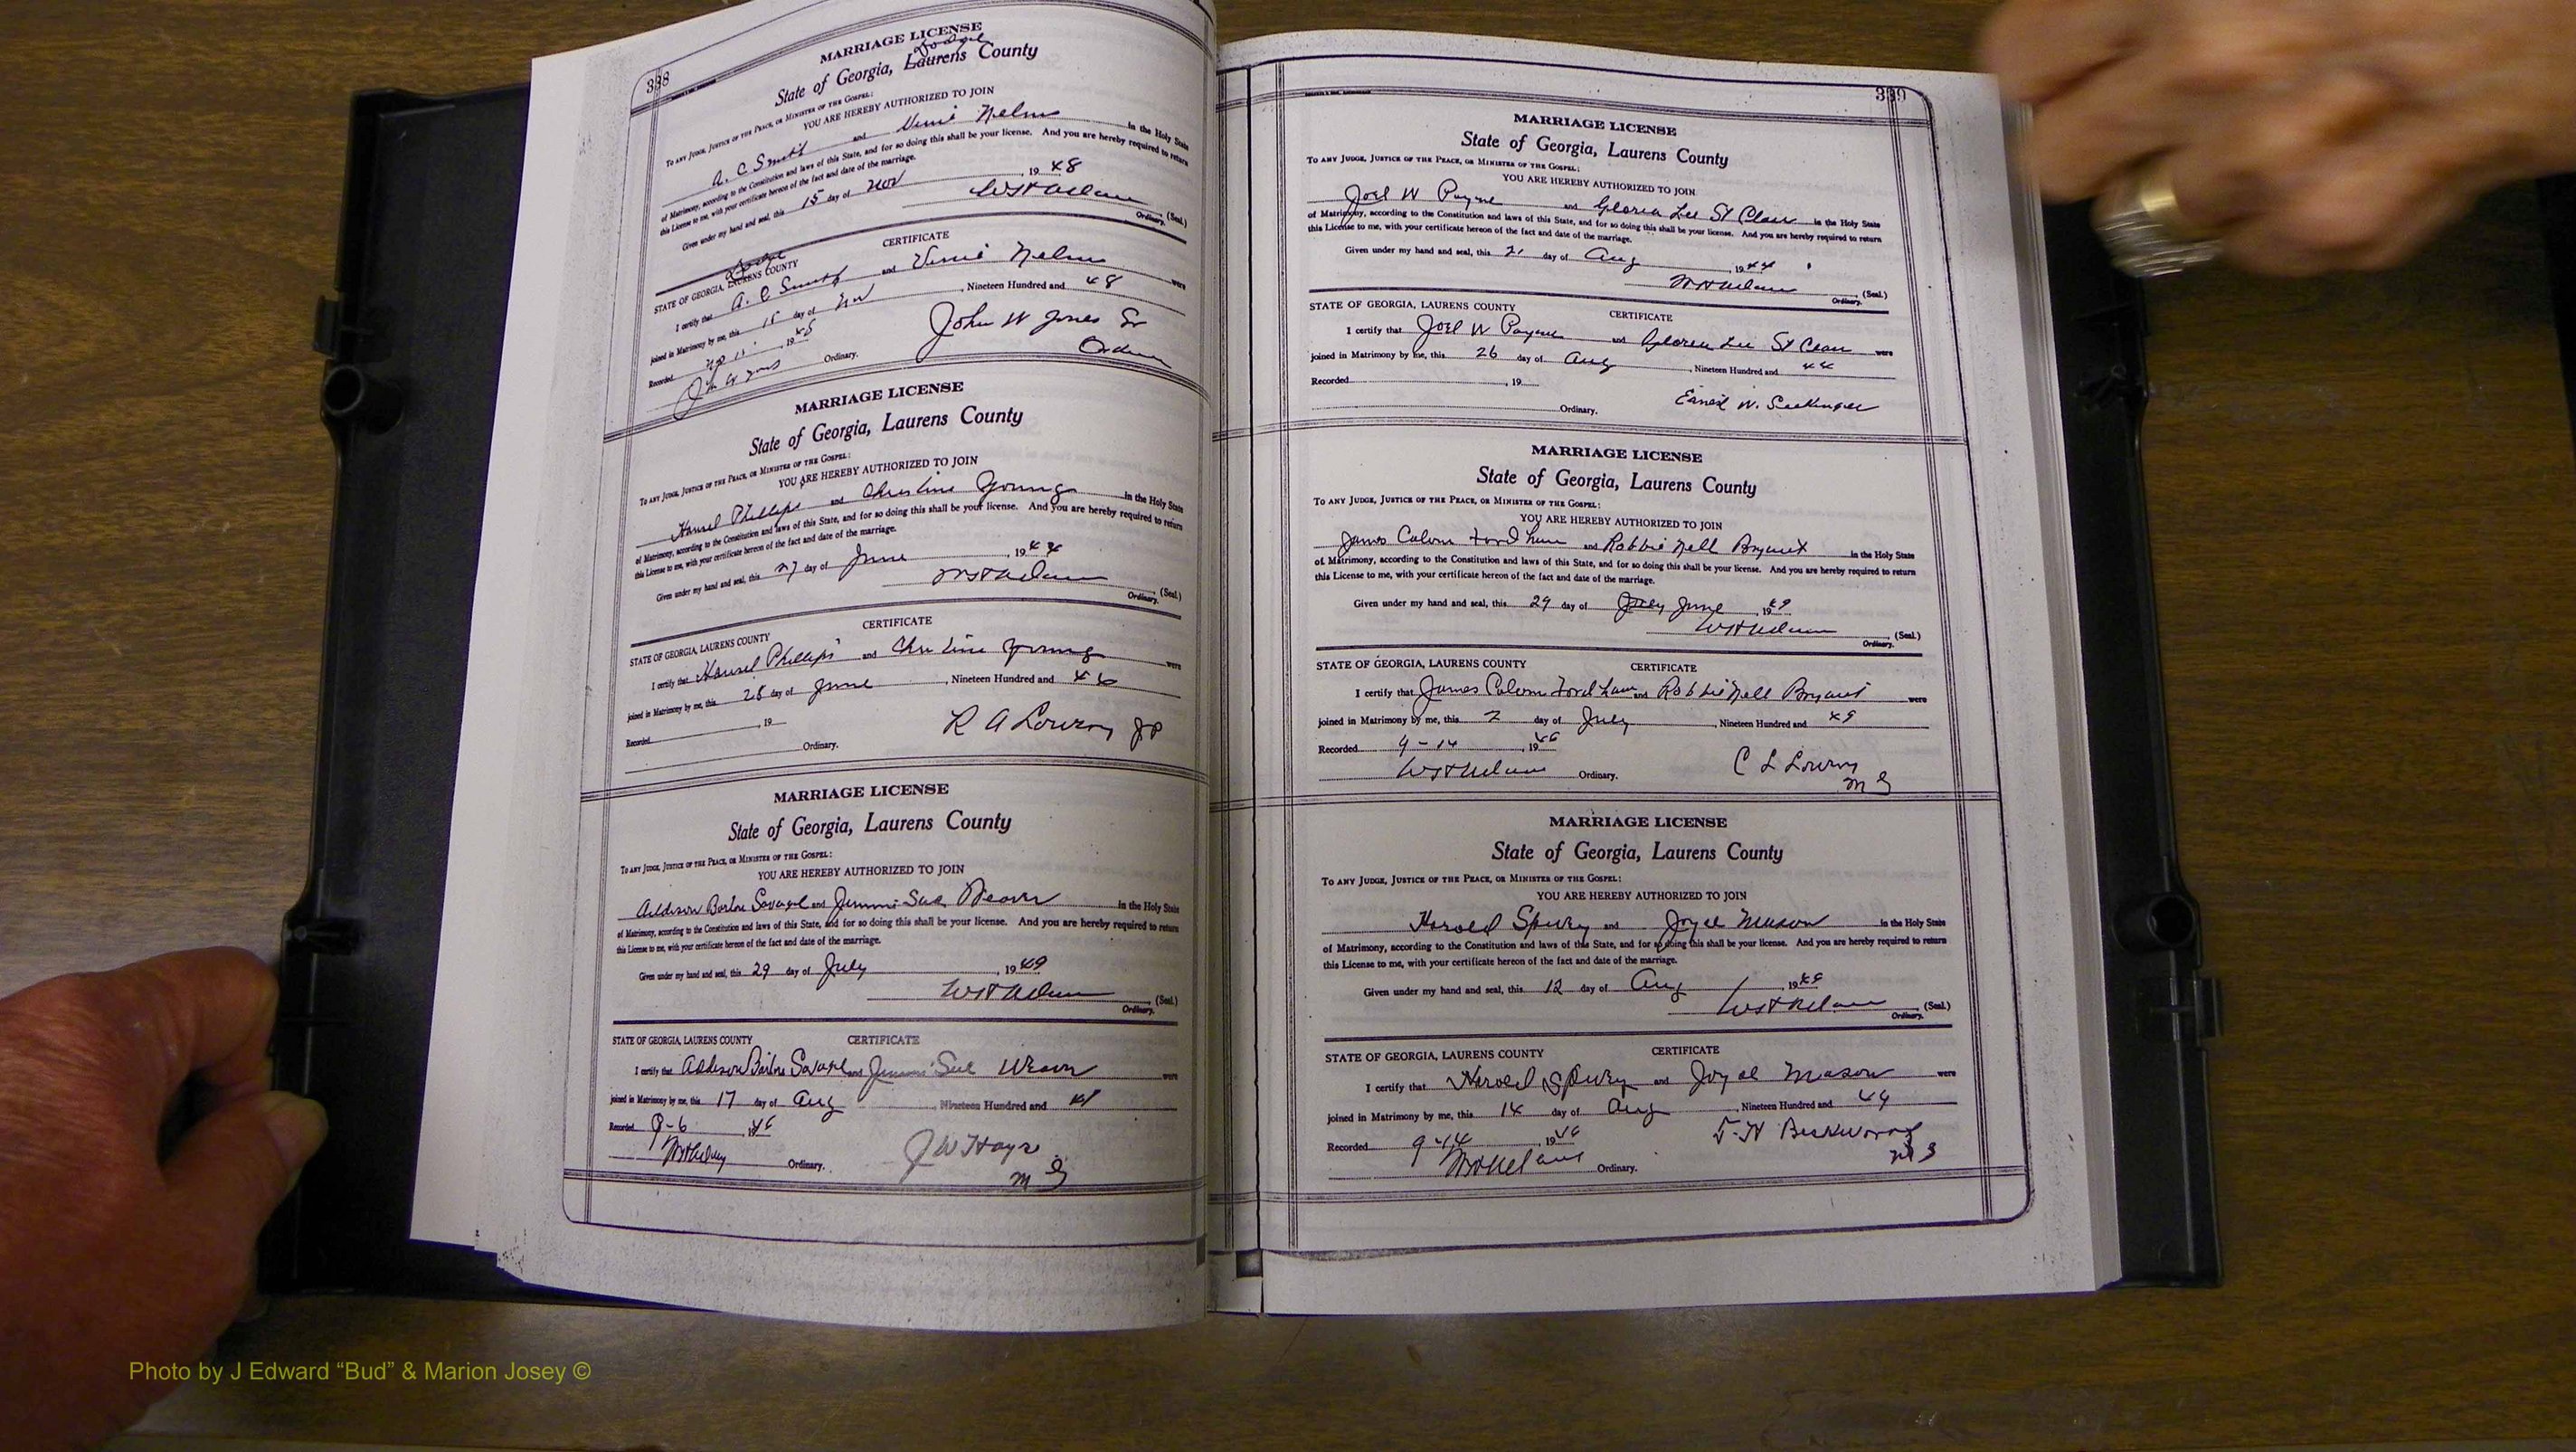 338
MARRIAGE LICENSE
Dodge
State of Georgia, Laurens County
TO ANY JUDGE, JUSTICE OF THE PEACE, OR MINISTER OF THE GOSPEL:
YOU ARE HEREBY AUTHORIZED TO JOIN
A. C Smith and Nelms in the Holy State
of Matrimony, according to the Constitution and laws of this State, and for so doing this shall be your license. And you are hereby required to return
this License to me, with your certificate hereon of the fact and date of the marriage.
Given under my hand and seal, this 15 day of Nov, 1948
(Seal.)
Ordinary.
CERTIFICATE
Dodge
STATE OF GEORGIA, LAURENS COUNTY
I certify that A. C Smith and Nelms were
joined in Matrimony by me, this 15 day of Nov, Nineteen Hundred and 48
Recorded 19
Ordinary.
John W Jones Sr
MARRIAGE LICENSE
State of Georgia, Laurens County
TO ANY JUDGE, JUSTICE OF THE PEACE, OR MINISTER OF THE GOSPEL:
YOU ARE HEREBY AUTHORIZED TO JOIN
Phillips and Christine Young in the Holy State
of Matrimony, according to the Constitution and laws of this State, and for so doing this shall be your license. And you are hereby required to return
this License to me, with your certificate hereon of the fact and date of the marriage.
Given under my hand and seal, this 27 day of June, 19
(Seal.)
Ordinary.
CERTIFICATE
STATE OF GEORGIA, LAURENS COUNTY
I certify that Phillips and Christine Young were
joined in Matrimony by me, this 28 day of June, Nineteen Hundred and
Recorded , 19
Ordinary.
R A Lowery JP
MARRIAGE LICENSE
State of Georgia, Laurens County
TO ANY JUDGE, JUSTICE OF THE PEACE, OR MINISTER OF THE GOSPEL:
YOU ARE HEREBY AUTHORIZED TO JOIN
Addison Savage and Jimmie Sue Weaver in the Holy State
of Matrimony, according to the Constitution and laws of this State, and for so doing this shall be your license. And you are hereby required to return
this License to me, with your certificate hereon of the fact and date of the marriage.
Given under my hand and seal, this 29 day of July, 1949
(Seal.)
Ordinary.
STATE OF GEORGIA, LAURENS COUNTY CERTIFICATE
I certify that Addison Savage and Jimmie Sue Weaver were
joined in Matrimony by me, this 17 day of Aug, Nineteen Hundred and
Recorded 9-6
Ordinary.
J W Hays
M G
339
MARRIAGE LICENSE
State of Georgia, Laurens County
TO ANY JUDGE, JUSTICE OF THE PEACE, OR MINISTER OF THE GOSPEL:
YOU ARE HEREBY AUTHORIZED TO JOIN
Joel W Payne and Gloria Lee St Clair in the Holy State
of Matrimony, according to the Constitution and laws of this State, and for so doing this shall be your license. And you are hereby required to return
this License to me, with your certificate hereon of the fact and date of the marriage.
Given under my hand and seal, this day of Aug, 1944
(Seal.)
Ordinary.
STATE OF GEORGIA, LAURENS COUNTY CERTIFICATE
I certify that Joel W Payne and Gloria Lee St Clair were
joined in Matrimony by me, this 26 day of Aug, Nineteen Hundred and 44
Recorded , 19
Ordinary.
W.
MARRIAGE LICENSE
State of Georgia, Laurens County
TO ANY JUDGE, JUSTICE OF THE PEACE, OR MINISTER OF THE GOSPEL:
YOU ARE HEREBY AUTHORIZED TO JOIN
James Calvin Fordham and Robbie Nell Bryant in the Holy State
of Matrimony, according to the Constitution and laws of this State, and for so doing this shall be your license. And you are hereby required to return
this License to me, with your certificate hereon of the fact and date of the marriage.
Given under my hand and seal, this 29 day of June, 1949
(Seal.)
Ordinary.
STATE OF GEORGIA, LAURENS COUNTY CERTIFICATE
I certify that James Calvin Fordham and Robbie Nell Bryant were
joined in Matrimony by me, this 2 day of July, Nineteen Hundred and 49
Recorded 9-14, 19
Ordinary.
C L Lowery
M G
MARRIAGE LICENSE
State of Georgia, Laurens County
TO ANY JUDGE, JUSTICE OF THE PEACE, OR MINISTER OF THE GOSPEL:
YOU ARE HEREBY AUTHORIZED TO JOIN
Harold Spivey and Joyce Mason in the Holy State
of Matrimony, according to the Constitution and laws of this State, and for so doing this shall be your license. And you are hereby required to return
this License to me, with your certificate hereon of the fact and date of the marriage.
Given under my hand and seal, this 12 day of Aug, 1949
(Seal.)
Ordinary.
STATE OF GEORGIA, LAURENS COUNTY CERTIFICATE
I certify that Harold Spivey and Joyce Mason were
joined in Matrimony by me, this 14 day of Aug, Nineteen Hundred and 49
Recorded 9-14, 19
Ordinary.
M G
Photo by J Edward “Bud” & Marion Josey ©